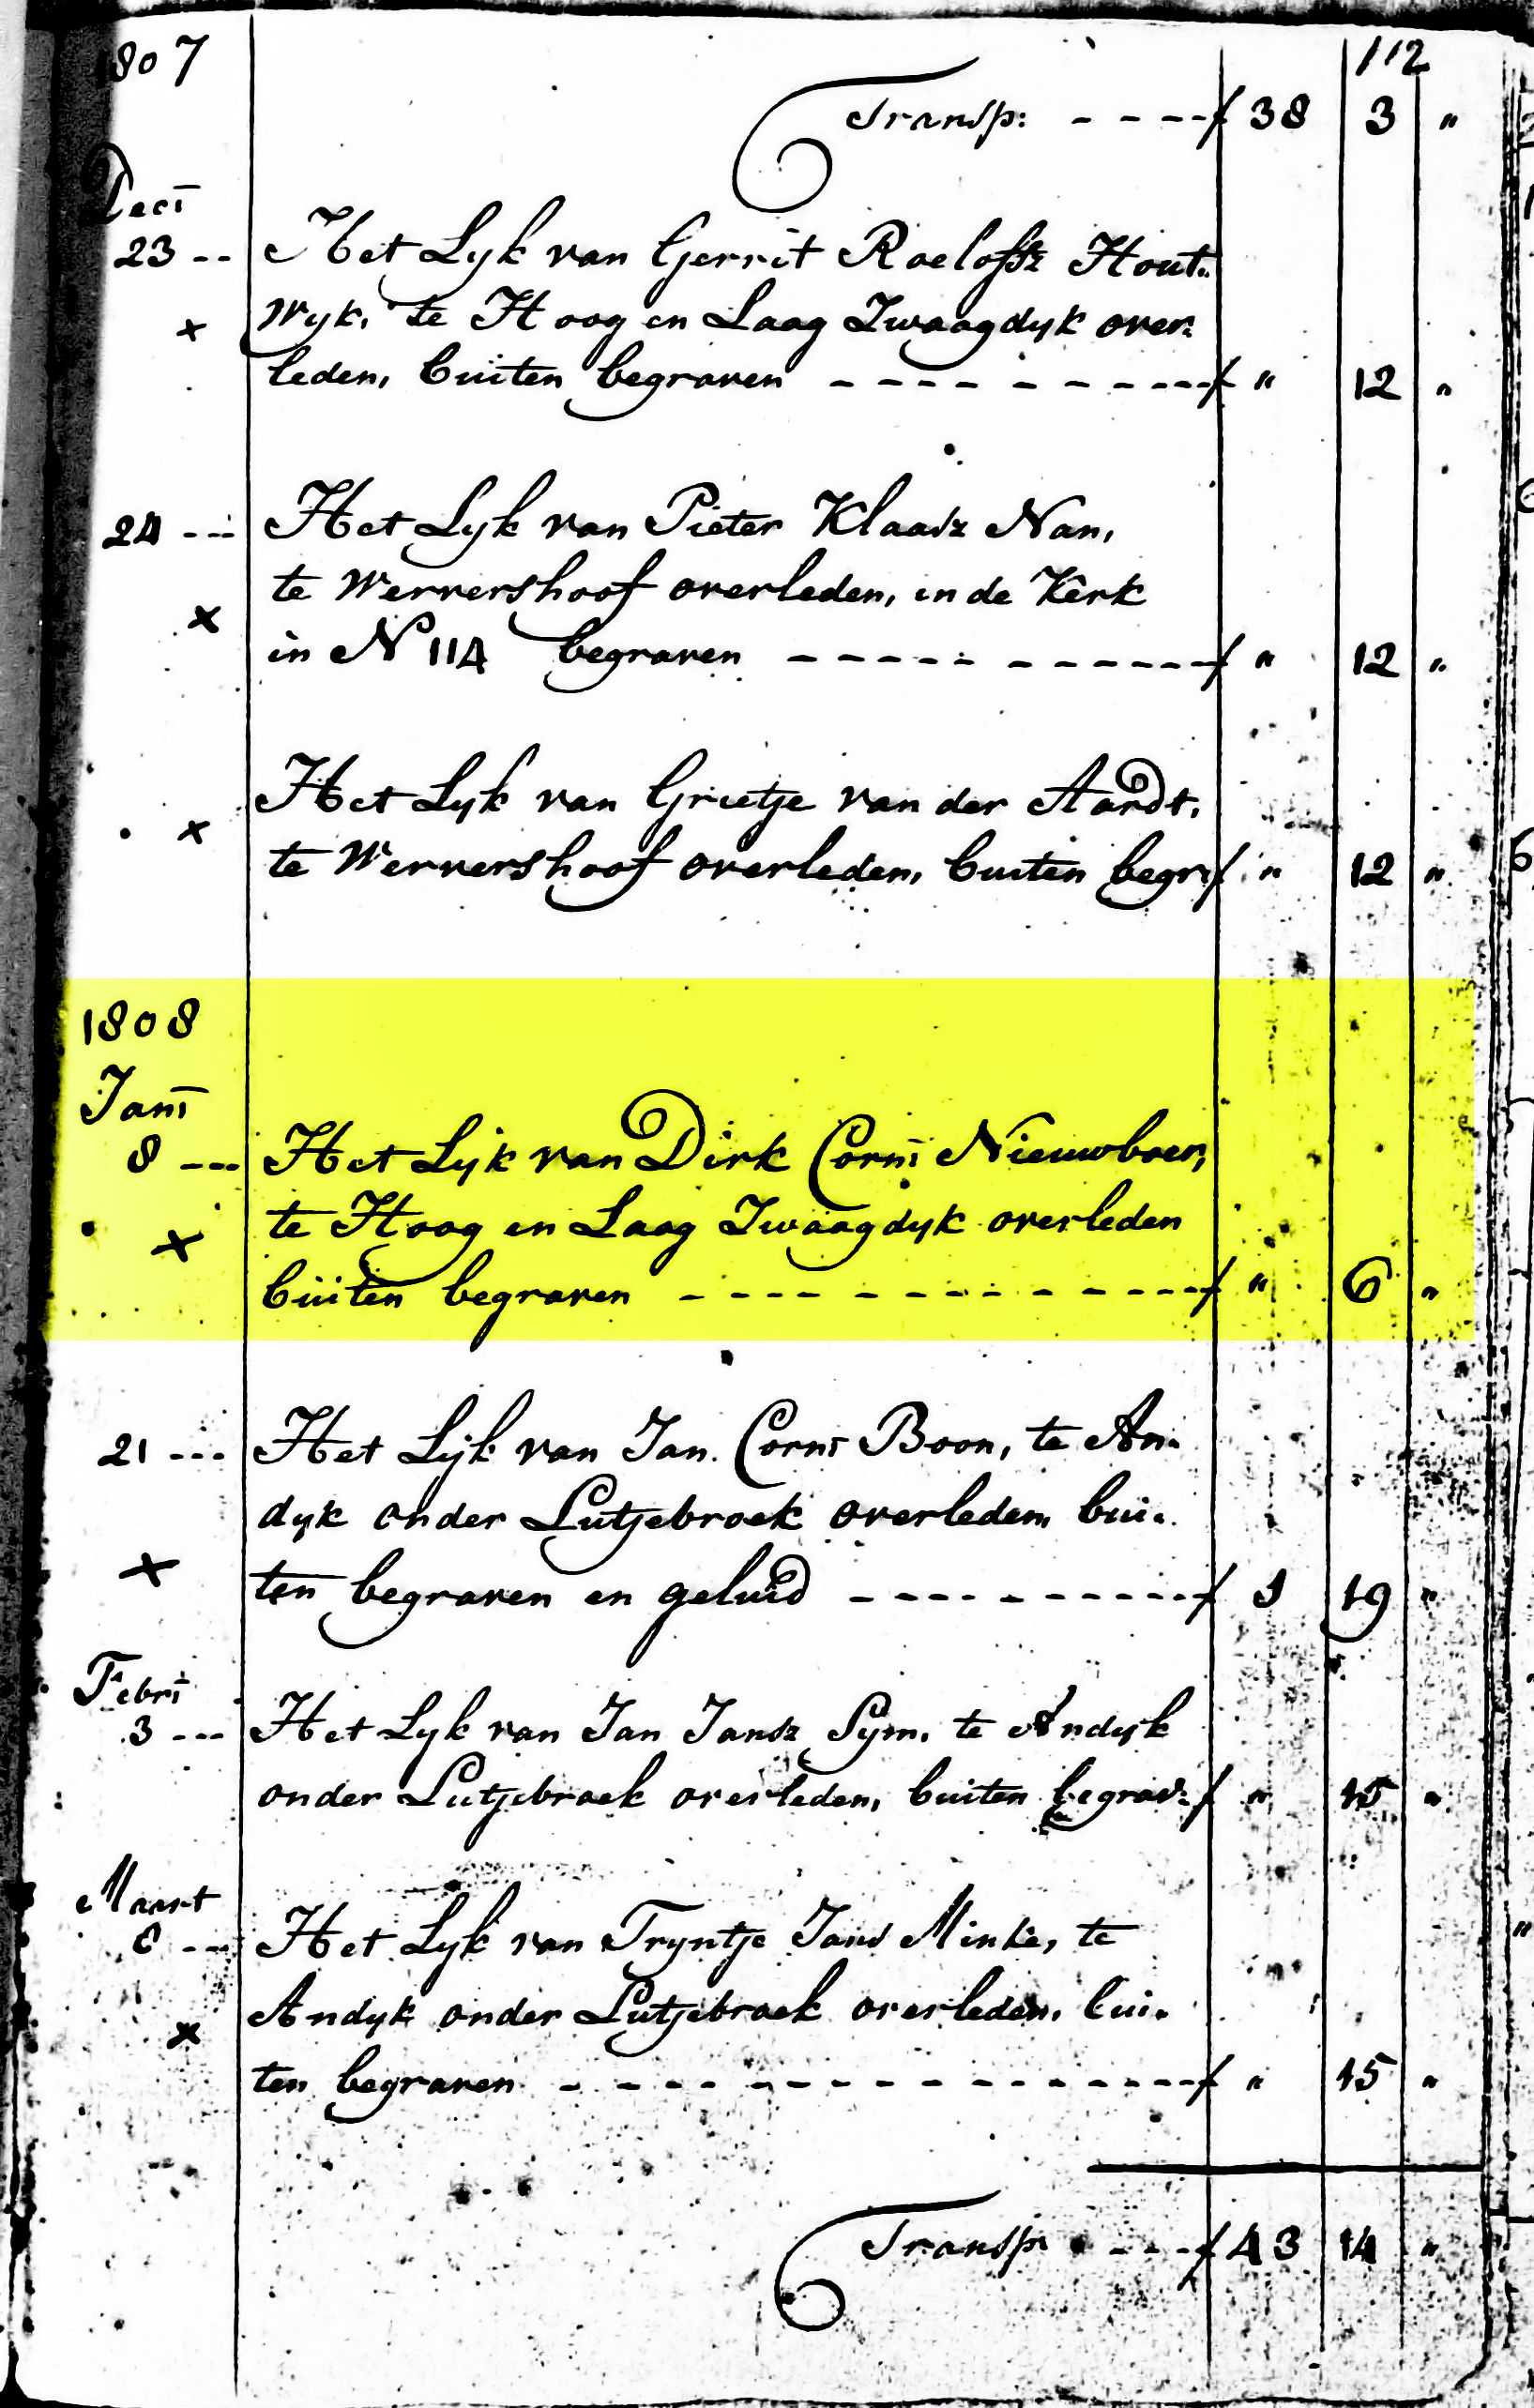 1807
112
Transp: - - - - f 38 3 "
Decr
23 -- Het Lyk van Gerrit Roelofsz Hout-
wyk, te Hoog en Laag Zwaagdyk over-
leden, buiten begraven - - - - - - - - - f " 12 "
24 --- Het Lyk van Pieter Klaasz Nan,
te Wervershoof overleden, in de Kerk
in N 114 begraven - - - - - - - - - - f " 12 "
Het Lyk van Grietje van der Aardt,
te Wervershoof overleden, buiten begr: f " 12 "
1808
Janr
8 --- Het Lyk van Dirk Corns Nieuwboer,
te Hoog en Laag Zwaagdyk overleden
buiten begraven - - - - - - - - - - - f " 6 "
21 --- Het Lyk van Jan Corns Boon, te An-
dyk onder Lutjebroek overleden, bui-
ten begraven en geluid - - - - - - - - f 1 19 "
Febrr
3 --- Het Lyk van Jan Jansz Sym, te Andyk
onder Lutjebroek overleden, buiten begrav: f " 15 "
Maart
Het Lyk van Tryntje Jans Minke, te
Andyk onder Lutjebroek overleden, bui-
ten begraven - - - - - - - - - - - - - - f " 15 "
Transp: - - - f 43 14 "